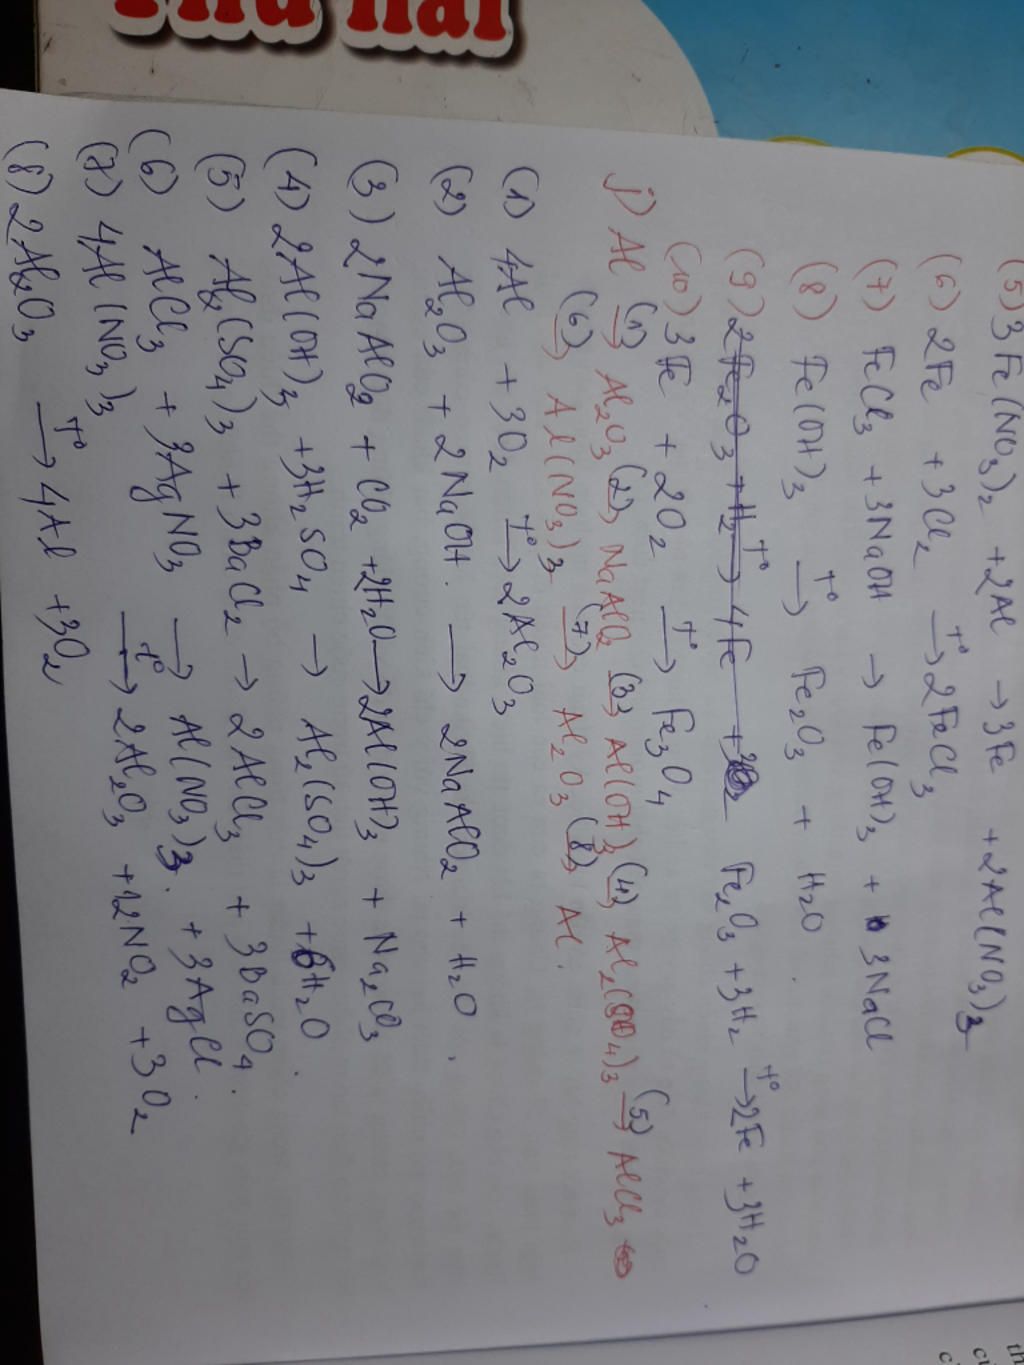 Thu hai
(5) 3Fe(NO3)2 + 2Al → 3Fe + 2Al(NO3)3
(6) 2Fe + 3Cl2 →t° 2FeCl3
(7) FeCl3 + 3NaOH → Fe(OH)3 + 3NaCl
(8) Fe(OH)3 →t° Fe2O3 + H2O
(9) Fe2O3 + 3H2 →t° 2Fe + 3H2O
(10) 3Fe + 2O2 →t° Fe3O4
j) Al →(1) Al2O3 →(2) NaAlO2 →(3) Al(OH)3 →(4) Al2(SO4)3 →(5) AlCl3
→(6) Al(NO3)3 →(7) Al2O3 →(8) Al.
(1) 4Al + 3O2 →t° 2Al2O3
(2) Al2O3 + 2NaOH. → 2NaAlO2 + H2O.
(3) 2NaAlO2 + CO2 + 2H2O → 2Al(OH)3 + Na2CO3
(4) 2Al(OH)3 + 3H2SO4 → Al2(SO4)3 + 6H2O.
(5) Al2(SO4)3 + 3BaCl2 → 2AlCl3 + 3BaSO4.
(6) AlCl3 + 3AgNO3 → Al(NO3)3. + 3AgCl.
(7) 4Al(NO3)3 →t° 2Al2O3 + 12NO2 + 3O2
(8) 2Al2O3 →t° 4Al + 3O2